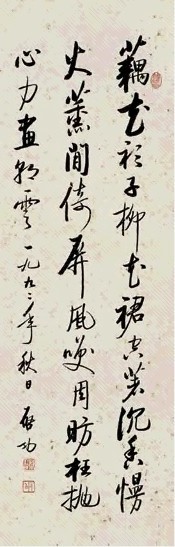 藕花衫子柳花裙空著沉香慢
火熏閒倚屏風笑周昉枉拋
心力畫朝雲一九九二年秋日啟功